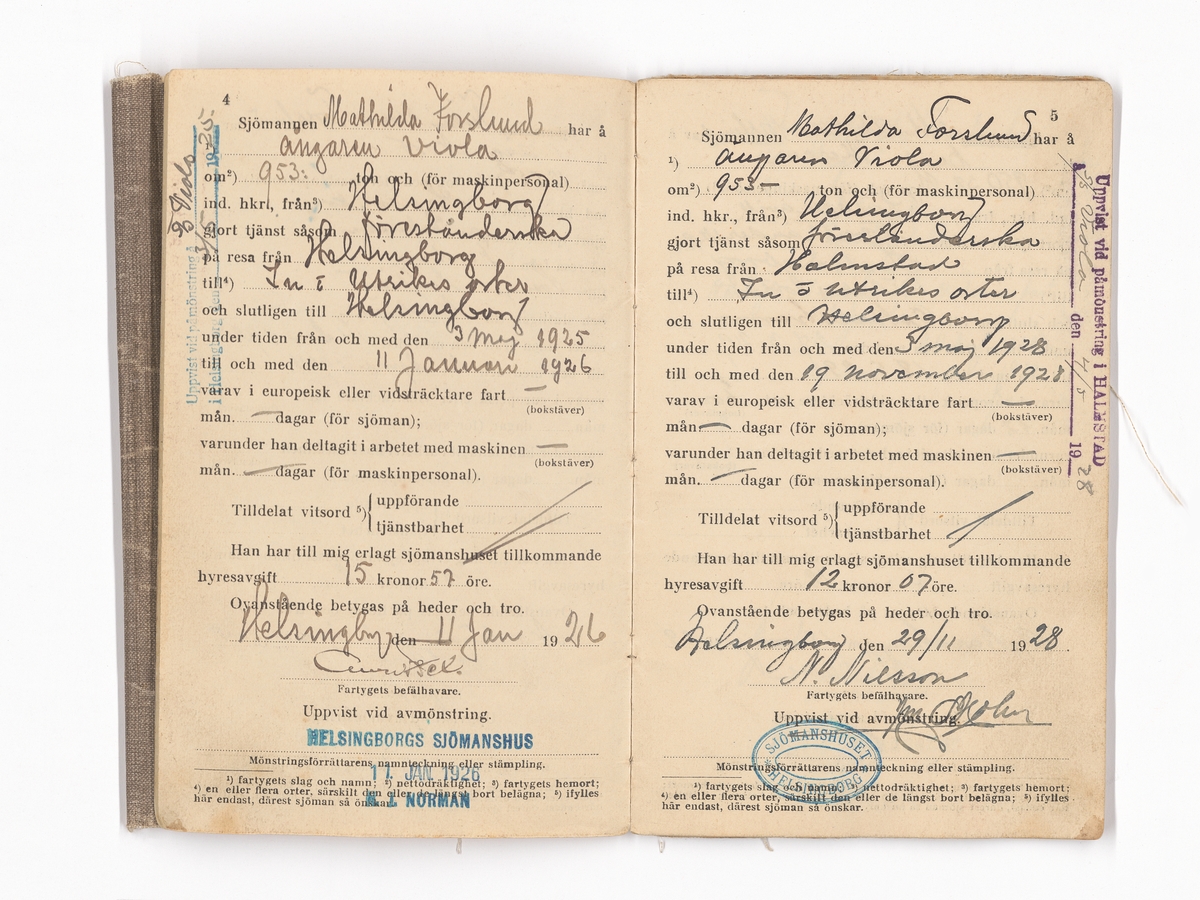 4
Sjömannen Mathilda Forslund har å
ångaren Viola
om²) 953: ton och (för maskinpersonal)
ind. hkr, från³) Helsingborg
gjort tjänst såsom förestånderska
på resa från Helsingborg
till⁴) In o Utrikes orter
och slutligen till Helsingborg
under tiden från och med den 3 Maj 1925
till och med den 11 Januari 1926
varav i europeisk eller vidsträcktare fart —
(bokstäver)
mån. — dagar (för sjöman);
varunder han deltagit i arbetet med maskinen —
(bokstäver)
mån. — dagar (för maskinpersonal).
Tilldelat vitsord ⁵) { uppförande
tjänstbarhet
Han har till mig erlagt sjömanshuset tillkommande
hyresavgift 15 kronor 57 öre.
Ovanstående betygas på heder och tro.
Helsingborg den 11 Jan 1926
Fartygets befälhavare.
Uppvist vid avmönstring.
HELSINGBORGS SJÖMANSHUS
Mönstringsförrättarens namnteckning eller stämpling.
11. JAN 1926
N. NORMAN
¹) fartygets slag och namn; ²) nettodräktighet; ³) fartygets hemort;
⁴) en eller flera orter, särskilt den eller de längst bort belägna; ⁵) ifylles
här endast, därest sjöman så önskar.
Viola
Uppvist vid påmönstring å
i Helsingborg den 1925
5
Sjömannen Mathilda Forslund har å
¹) ångaren Viola
om²) 953— ton och (för maskinpersonal)
ind. hkr., från³) Helsingborg
gjort tjänst såsom föreståndarska
på resa från Halmstad
till⁴) In o utrikes orter
och slutligen till Helsingborg
under tiden från och med den 3 maj 1928
till och med den 19 november 1928
varav i europeisk eller vidsträcktare fart —
(bokstäver)
mån — dagar (för sjöman);
varunder han deltagit i arbetet med maskinen —
(bokstäver)
mån. — dagar (för maskinpersonal).
Tilldelat vitsord ⁵) { uppförande
tjänstbarhet
Han har till mig erlagt sjömanshuset tillkommande
hyresavgift 12 kronor 07 öre.
Ovanstående betygas på heder och tro.
Helsingborg den 29/11 1928
N. Nilsson
Fartygets befälhavare.
Uppvist vid avmönstring.
SJÖMANSHUSET
HELSINGBORG
Mönstringsförrättarens namnteckning eller stämpling.
¹) fartygets slag och namn; ²) nettodräktighet; ³) fartygets hemort;
⁴) en eller flera orter, särskilt den eller de längst bort belägna; ⁵) ifylles
här endast, därest sjöman så önskar.
Uppvist vid påmönstring i HALMSTAD
å Viola den 4/5 1928